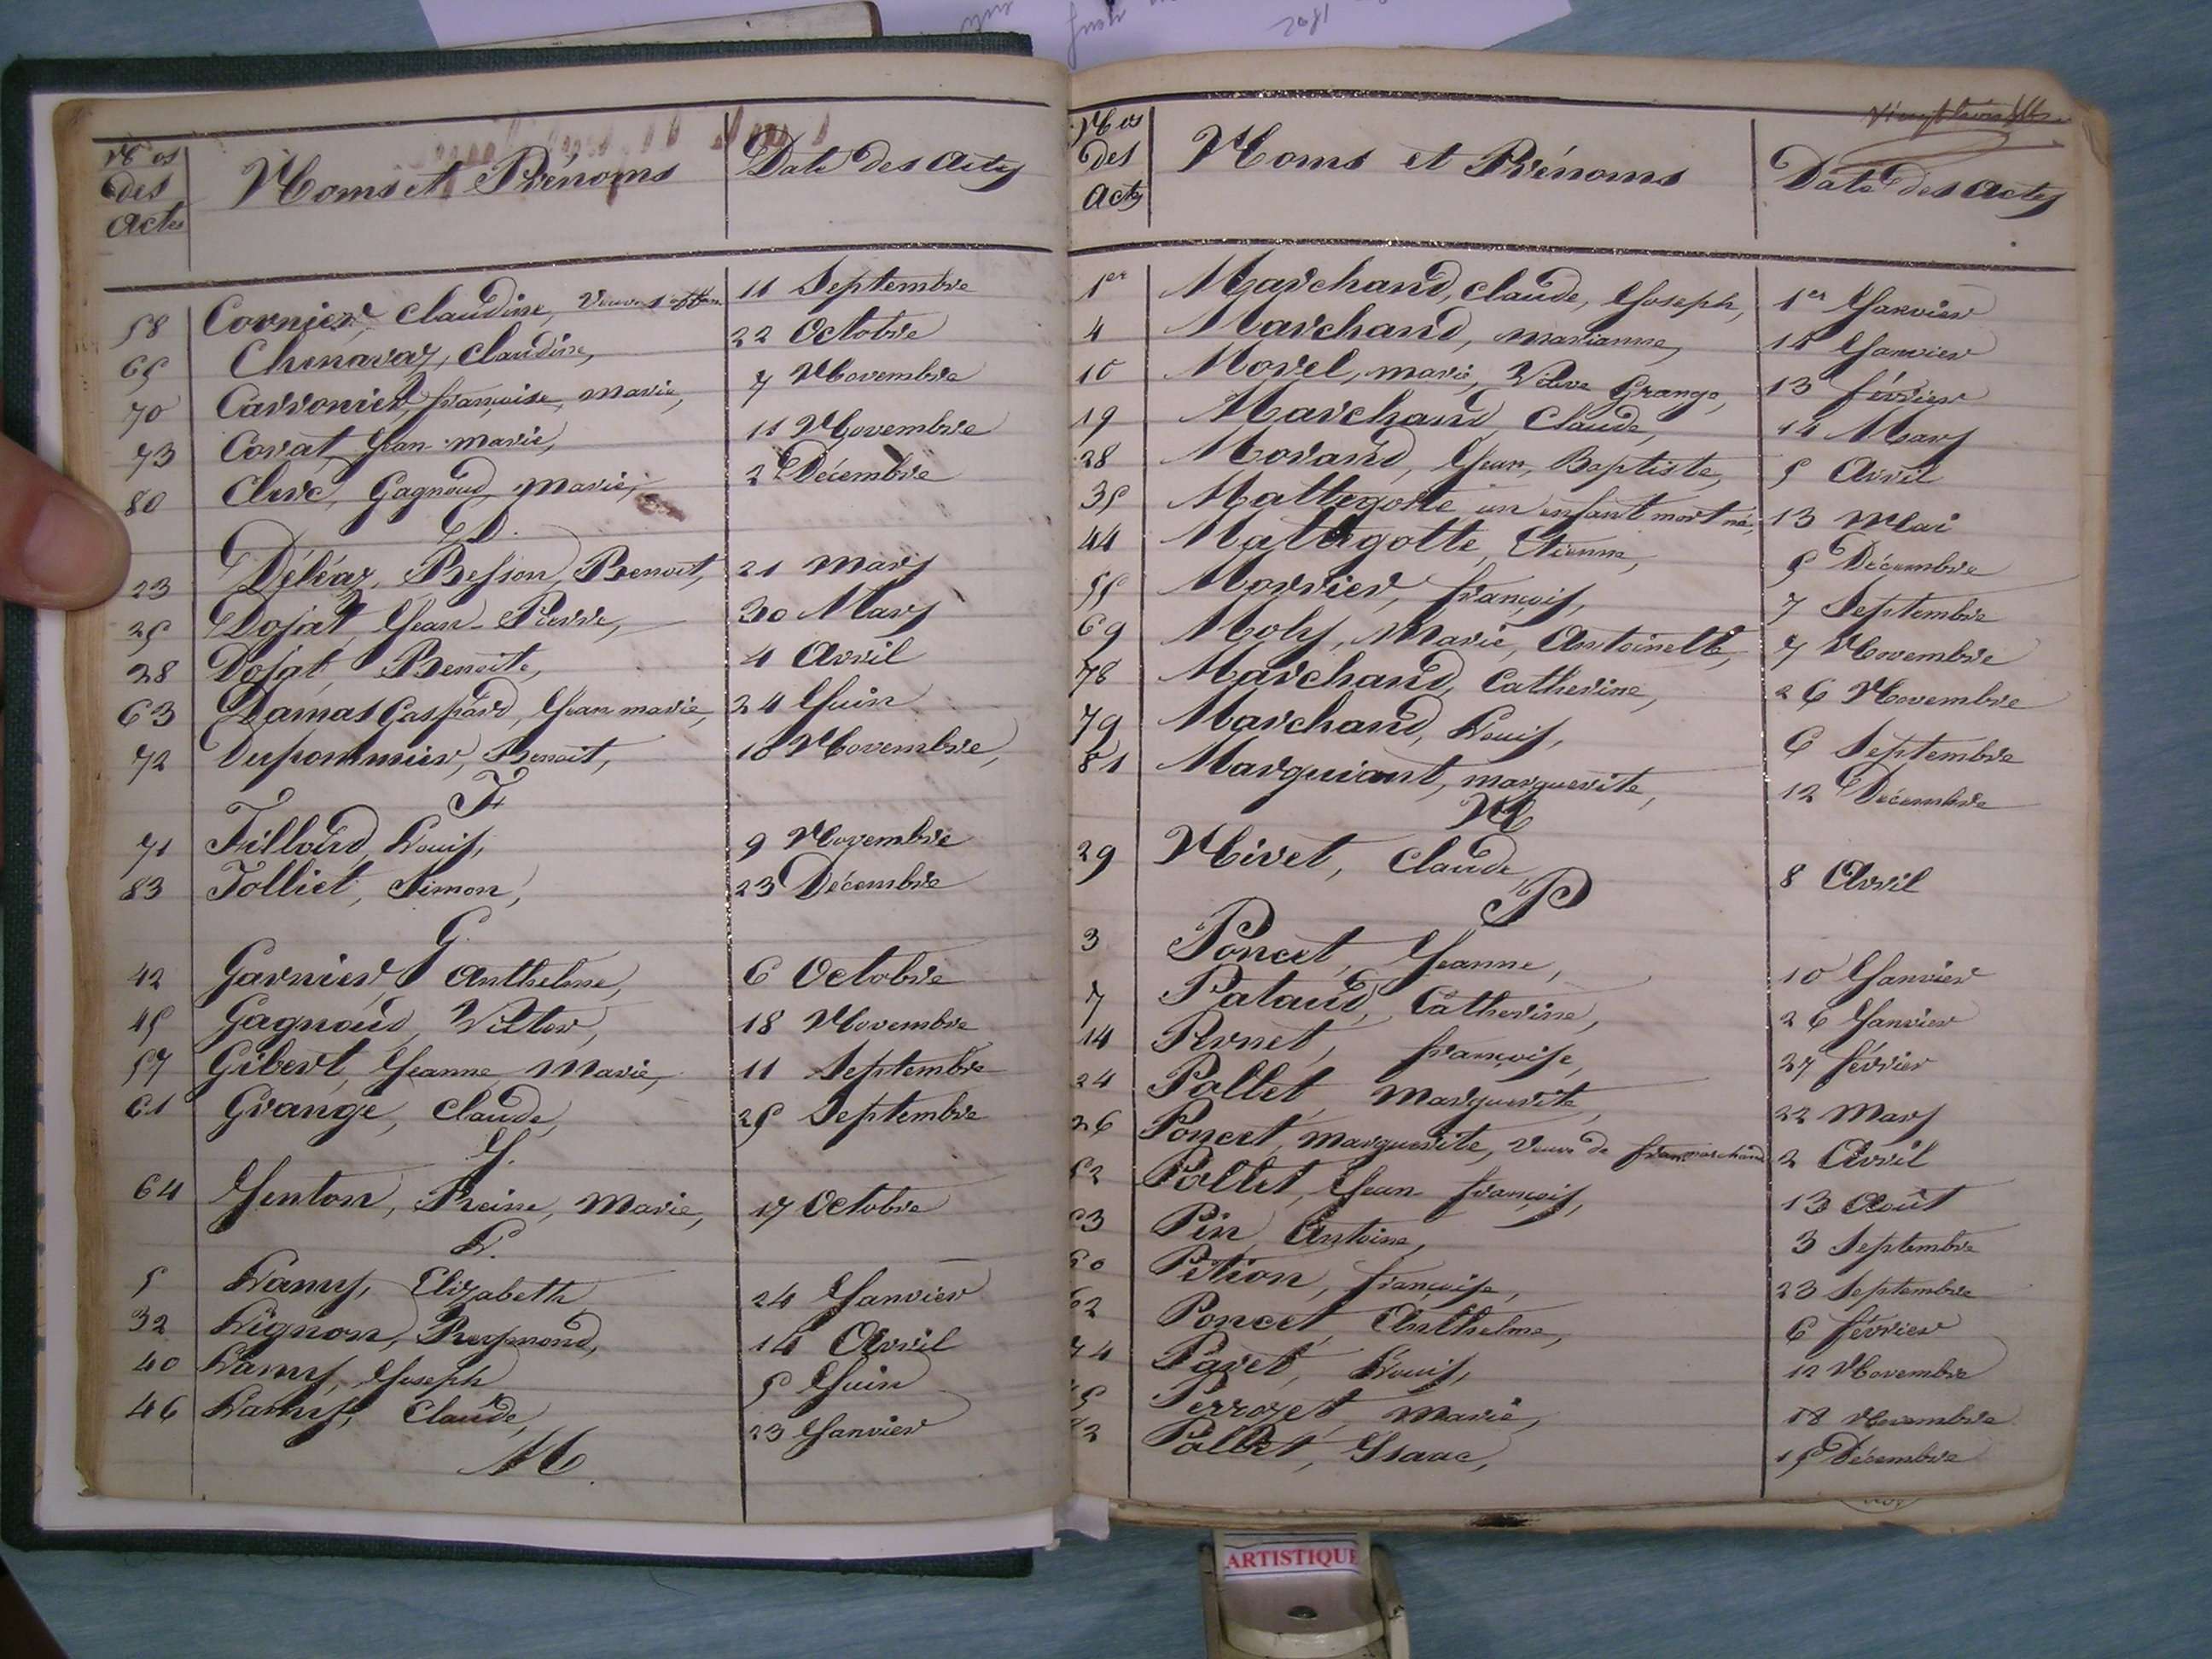 Nos des Actes
Noms et Prénoms
Date des Actes
58 Cornier, Claudine, Veuve 11 Septembre
65 Chenavaz, Claudine, 22 Octobre
70 Carronier, françoise, marie, 7 Novembre
73 Corat, Jean-marie, 11 Novembre
80 Clerc, Gagnoud, Marie, 2 Décembre
D.
23 Déléaz, Besson, Benoit, 21 mars
25 Dojat, Jean-Pierre, 30 Mars
28 Dojat, Benoite, 4 Avril
63 Damas Gaspard, Jean marie, 24 Juin
72 Dupommier, Benoit, 10 Novembre,
F
71 Filloud, Louis, 9 Novembre
83 Folliet, Simon, 23 Décembre
G.
42 Garnier, Anthelme, 6 Octobre
45 Gagnoud, Victor, 18 Novembre
57 Gibert, Jeanne, Marie, 11 Septembre
61 Grange, Claude, 25 Septembre
J.
64 Jenton, Reine, Marie, 17 Octobre
L.
5 Lamy, Elizabeth, 24 Janvier
32 Lignon, Reymond, 14 Avril
40 Lamy, Joseph 5 Juin
46 Lamy, Claude, 23 Janvier
M.
Nos des Actes
Noms et Prénoms
Date des Actes
1er Marchand, Claude, Joseph, 1er Janvier
4 Marchand, marianne, 14 Janvier
10 Morel, marie, Veuve Grange, 13 février
19 Marchand, Claude, 14 Mars
28 Morand, Jean, Baptiste, 5 Avril
35 Mallegotte, un enfant mort né, 13 Mai
44 Mallegotte, Etienne, 5 Décembre
55 Morrier, françois, 7 Septembre
69 Moly, Marie, Antoinette, 7 Novembre
78 Marchand, Catherine, 26 Novembre
79 Marchand, Louis, 6 Septembre
81 Marguiant, marguerite, 12 Décembre
N
29 Nivet, Claude 8 Avril
P
3 Poncet, Jeanne, 10 Janvier
7 Pataud, Catherine, 26 Janvier
14 Pernet, françoise, 27 février
24 Pollet, Marguerite, 22 Mars
26 Poncet, Marguerite, Veuve de 2 Avril
52 Pollet, Jean françois, 13 Août
53 Pin, Antoine, 3 Septembre
60 Pition, françoise, 23 Septembre
62 Poncet, Anthelme, 6 février
74 Pavet, Louis, 12 Novembre
75 Perrozet, Marie, 18 Novembre
82 Pollet, Isaac, 15 Décembre
ARTISTIQUE